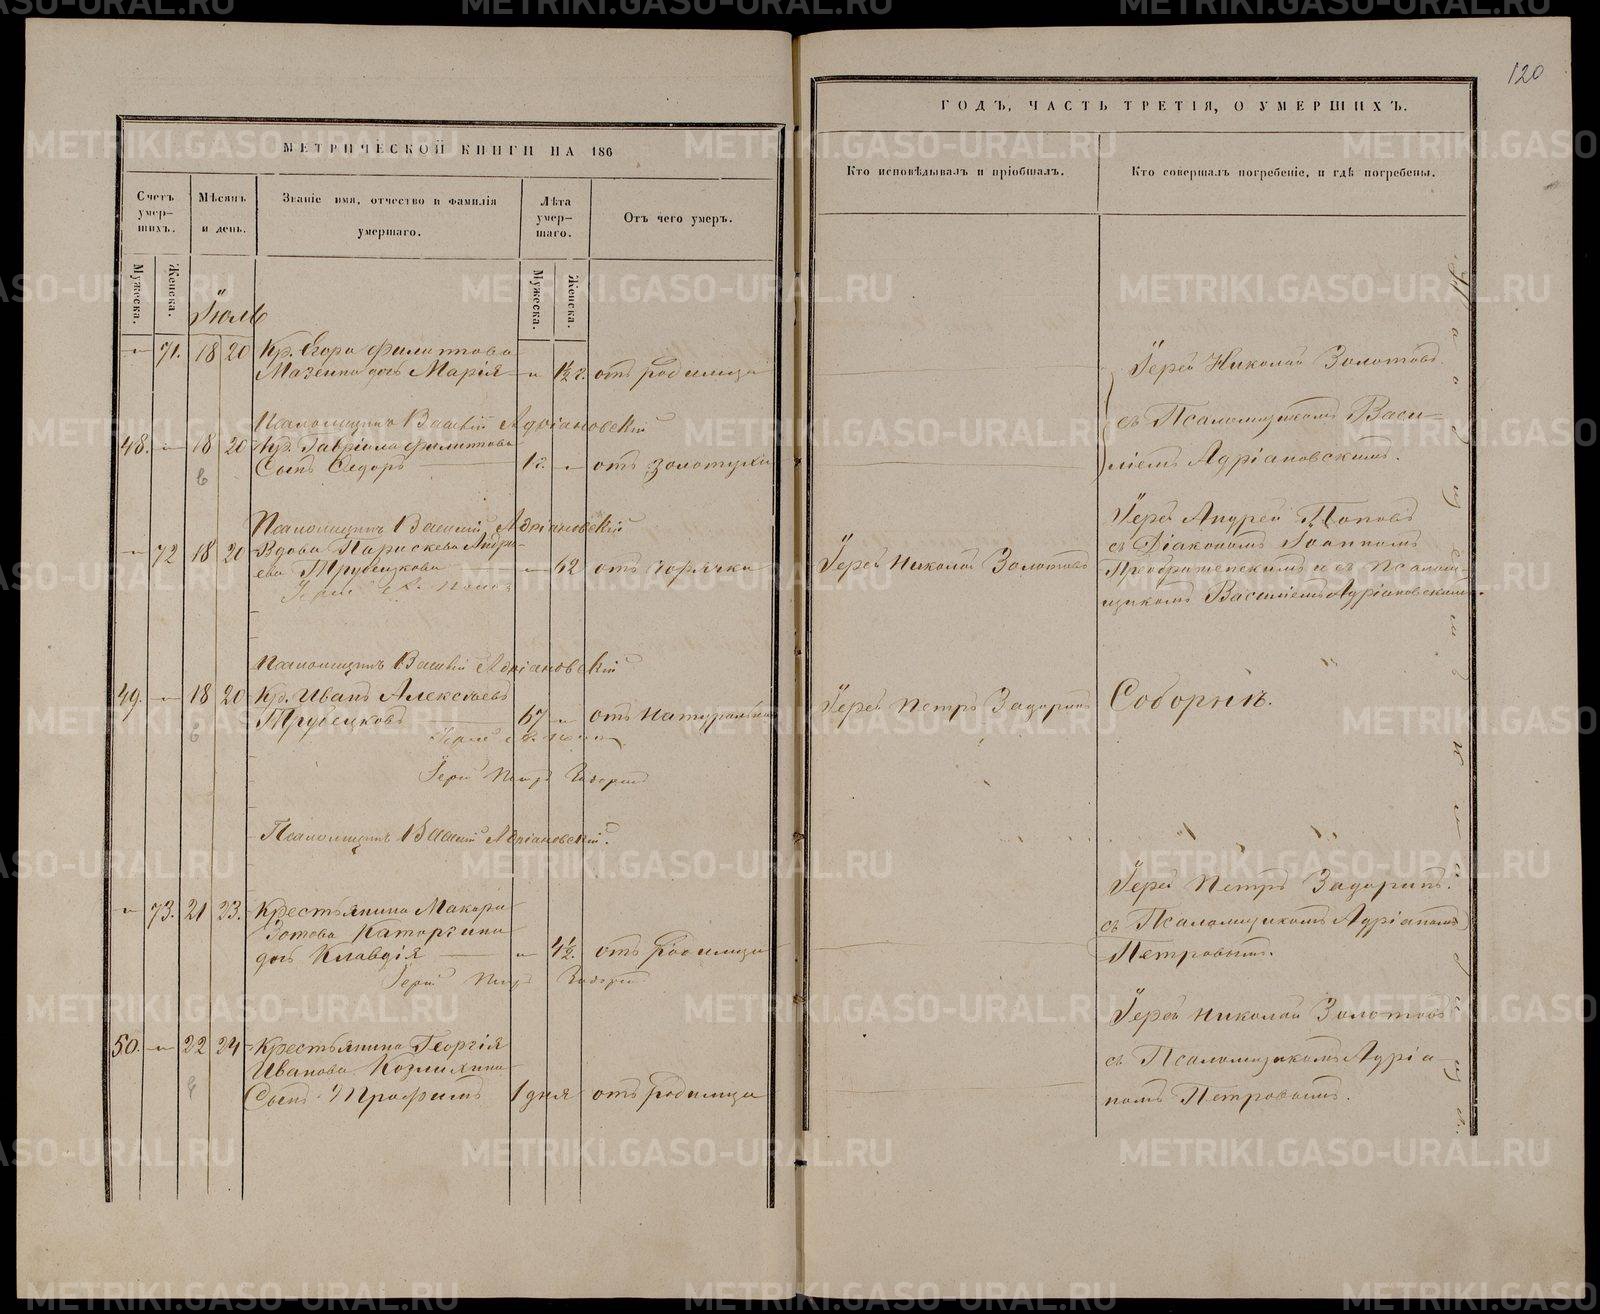 120
МЕТРИЧЕСКОЙ КНИГИ НА 186
ГОДЪ, ЧАСТЬ ТРЕТІЯ, О УМЕРШИХЪ.
Счетъ умер-
шихъ.
Мѣсяцъ
и день.
Званіе имя, отчество и фамилія
умершаго.
Лѣта
умер-
шаго.
Отъ чего умеръ.
Кто исповѣдывалъ и пріобщалъ.
Кто совершалъ погребеніе, и гдѣ погребены.
Мужеска.
Женска.
Мужеска.
Женска.
Іюль
71. 18 20 Кр. Егора Филиппова
дочь Марія 1½ г. отъ родимца
Іерей Николай Золотовъ
съ Псаломщикомъ Васи-
ліемъ Адріановскимъ.
Псаломщикъ Василій Адріановскій
48. 18 20 Кр. Гавріила Филиппова
Сынъ Сидоръ 1 г. отъ золотухи
Псаломщикъ Василій Адріановскій
72 18 20 Вдова Параскева Андре-
ева Трубецкова 62 отъ горячки
Іерей Николай Золотовъ
Іерей Андрей Поповъ
съ Діакономъ Іоанномъ
Преображенскимъ и съ Псалом-
щикомъ Василіемъ Адріановскимъ.
Іерей
Псаломщикъ Василій Адріановскій
49. 18 20 Кр. Иванъ Алексѣевъ
Трубецковъ 67 отъ натуральной
Іерей Петръ Задоринъ
Соборнѣ.
Іерей
Іерей Петръ Задоринъ
Псаломщикъ Василій Адріановскій.
73. 21 23. Крестьянина Макара
Зотова Каторгина
дочь Клавдія 4½. отъ родимца
Іерей Петръ Задоринъ
Іерей Петръ Задоринъ.
съ Псаломщикомъ Адріаномъ
Петровымъ.
50. 22 24 Крестьянина Георгія
Иванова Козмихина
Сынъ Трофимъ 1 дня отъ родимца
Іерей Николай Золотовъ
съ Псаломщикомъ Адріа-
номъ Петровымъ.
METRIKI.GASO-URAL.RU